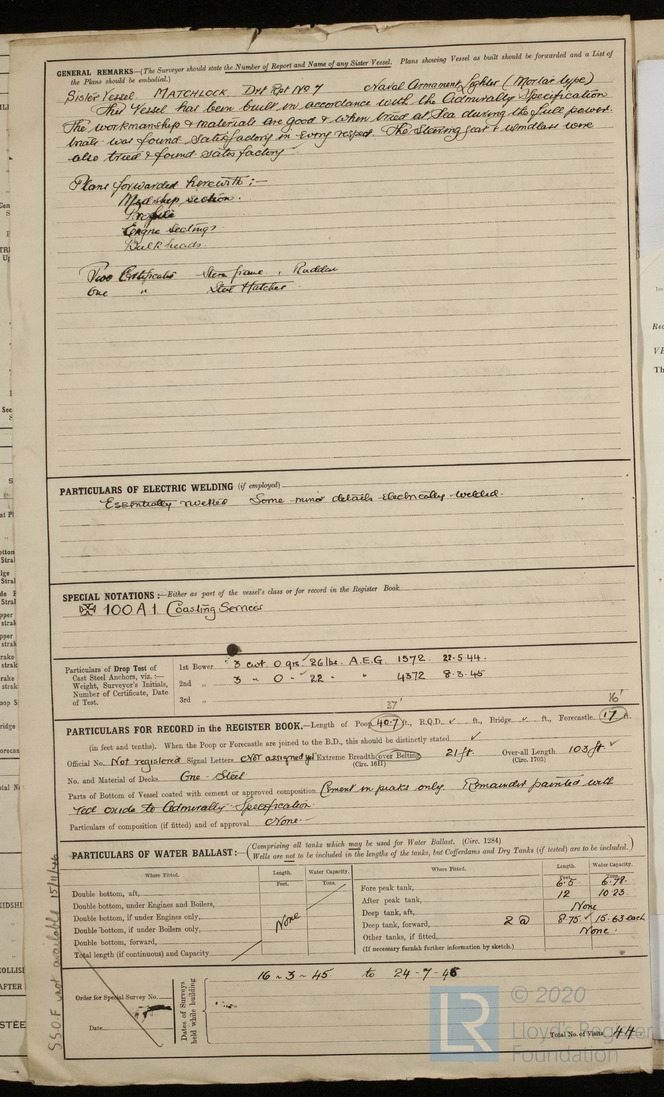 GENERAL REMARKS—(The Surveyor should state the Number of Report and Name of any Sister Vessel. Plans showing Vessel as built should be forwarded and a List of
the Plans should be embodied.)
Sister Vessel MATCHLOCK. Dht Rpt No 7 Naval Armament Lighter (Mortar type)
This Vessel has been built in accordance with the Admiralty Specification
The workmanship & materials are good & when tried at Sea during the full power
trials was found satisfactory in every respect. The Steering gear & windlass were
also tried & found satisfactory
Plans forwarded herewith :—
Midship section.
Profile
Engine seatings
Bulkheads.
Two Certificates Stern frame, Rudder
One " Steel Hatches
PARTICULARS OF ELECTRIC WELDING (if employed)
Essentially rivetted Some minor details electrically welded.
SPECIAL NOTATIONS :—Either as part of the vessel's class or for record in the Register Book
✠ 100 A1 Coasting Services
Particulars of Drop Test of
Cast Steel Anchors, viz. :—
Weight, Surveyor's Initials,
Number of Certificate, Date
of Test.
1st Bower 3 cwt. 0 qrs. 26 lbs. A.E.G. 1572 22.5.44.
2nd „ 3 " 0 - 22 - " 4372 8.3.45
3rd „
37' 16'
PARTICULARS FOR RECORD in the REGISTER BOOK.—Length of Poop 40.7 ft., R.Q.D. ft., Bridge ft., Forecastle 17 ft.
(in feet and tenths). When the Poop or Forecastle are joined to the B.D., this should be distinctly stated
Official No. Not registered Signal Letters Not assigned yet Extreme Breadth over Belting 21 ft Over-all Length 103 ft
(Circ. 1611) (Circ. 1703)
No. and Material of Decks One - Steel
Parts of Bottom of Vessel coated with cement or approved composition Cement in peaks only. Remainder painted with
red oxide to Admiralty Specification
Particulars of composition (if fitted) and of approval None.
PARTICULARS OF WATER BALLAST :— (Comprising all tanks which may be used for Water Ballast. (Circ. 1284)
Wells are not to be included in the lengths of the tanks, but Cofferdams and Dry Tanks (if tested) are to be included.)
Where Fitted. Length. Water Capacity. Where Fitted. Length. Water Capacity.
Feet. Tons. Feet. Tons.
Double bottom, aft, Fore peak tank, 6.5 6.78
Double bottom, under Engines and Boilers, After peak tank, 12 10.23
Double bottom, if under Engines only, None Deep tank, aft, None
Double bottom, if under Boilers only, Deep tank, forward, 2 @ 8.75 15.63 each
Double bottom, forward, Other tanks, if fitted, None.
Total length (if continuous) and Capacity (If necessary furnish further information by sketch.)
S.S.O.F. not available 15/11/46
Order for Special Survey No.
Date
Dates of Surveys
held while building
16-3-45 to 24-7-46
Total No. of Visits 44
LR
© 2020
Lloyd's Register
Foundation